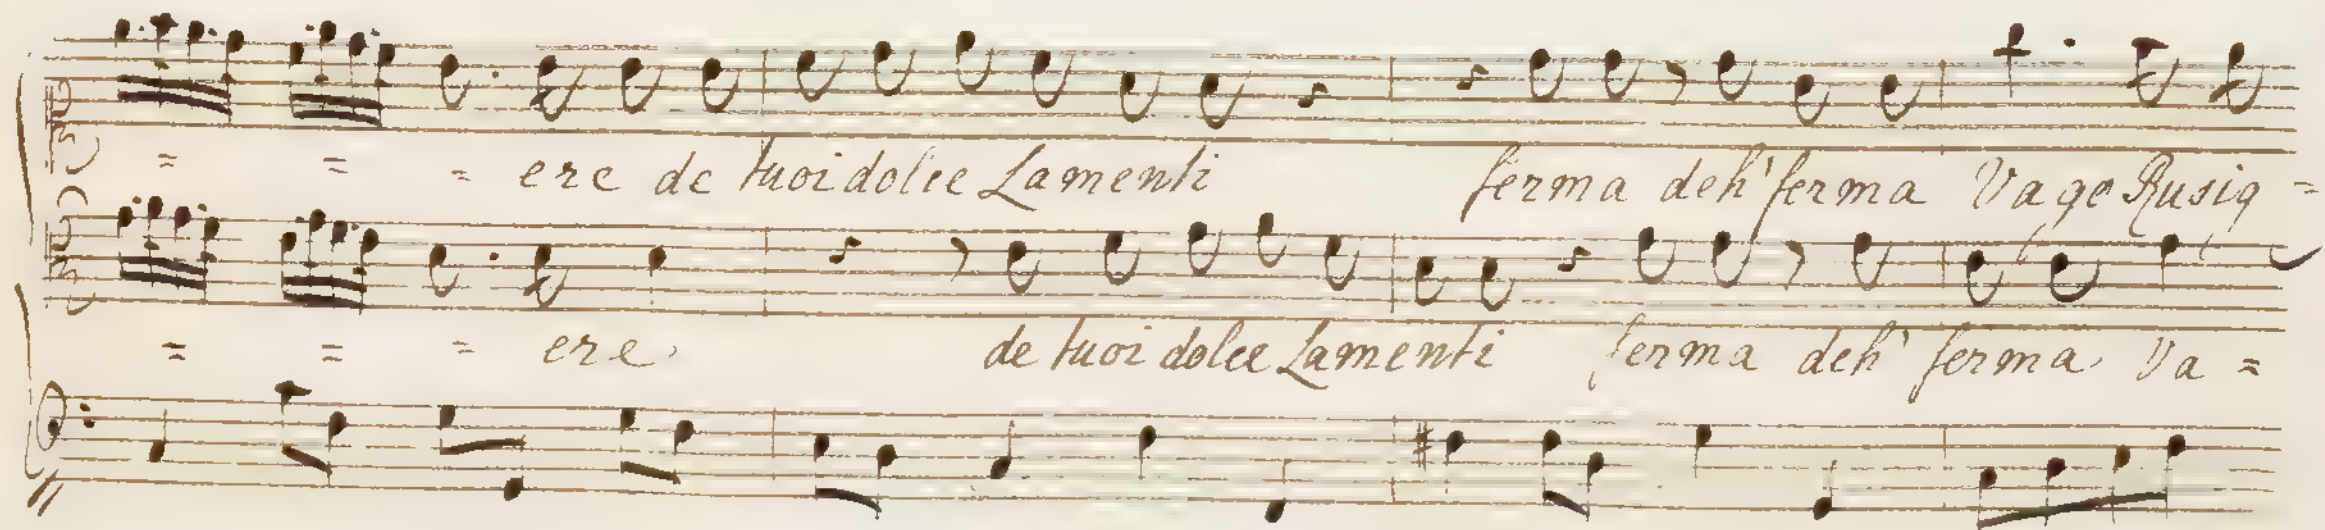 = = = ere de tuoi dolce Lamenti ferma deh' ferma Vago Rusig =
= = = ere de tuoi dolce Lamenti ferma deh' ferma Va =